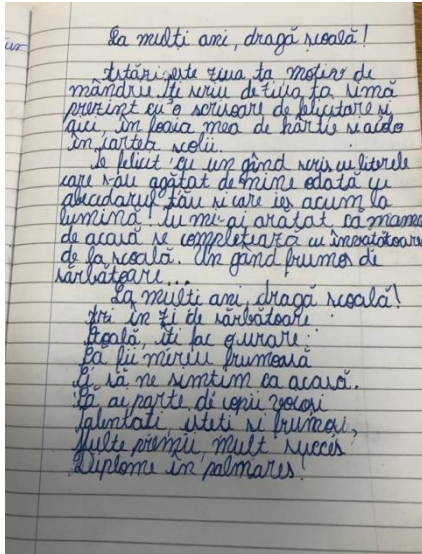 La mulți ani, dragă școală!
Astăzi, este ziua ta, motiv de
mândrie. Îți scriu de ziua ta, simă
prezint cu o scrisoare de felicitare și
aici, în foaia mea de hârtie și acolo
în cartea școlii.
Te felicit cu un gând scris cu literele
care s-au agățat de mine odată cu
abecedarul tău și care ies acum la
lumină. Tu mi-ai arătat că mama
de acasă se completează cu învățătoare
de la școală. Un gând frumos de
sărbătoare...
La mulți ani, dragă școală!
Azi în zi de sărbătoare
Școală, îți fac o urare:
Să fii mereu frumoasă
Și să ne simțim ca acasă.
Să ai parte de copii voioși
Talentați, isteți și frumoși,
Multe premii, mult succes
Diplome în palmares!